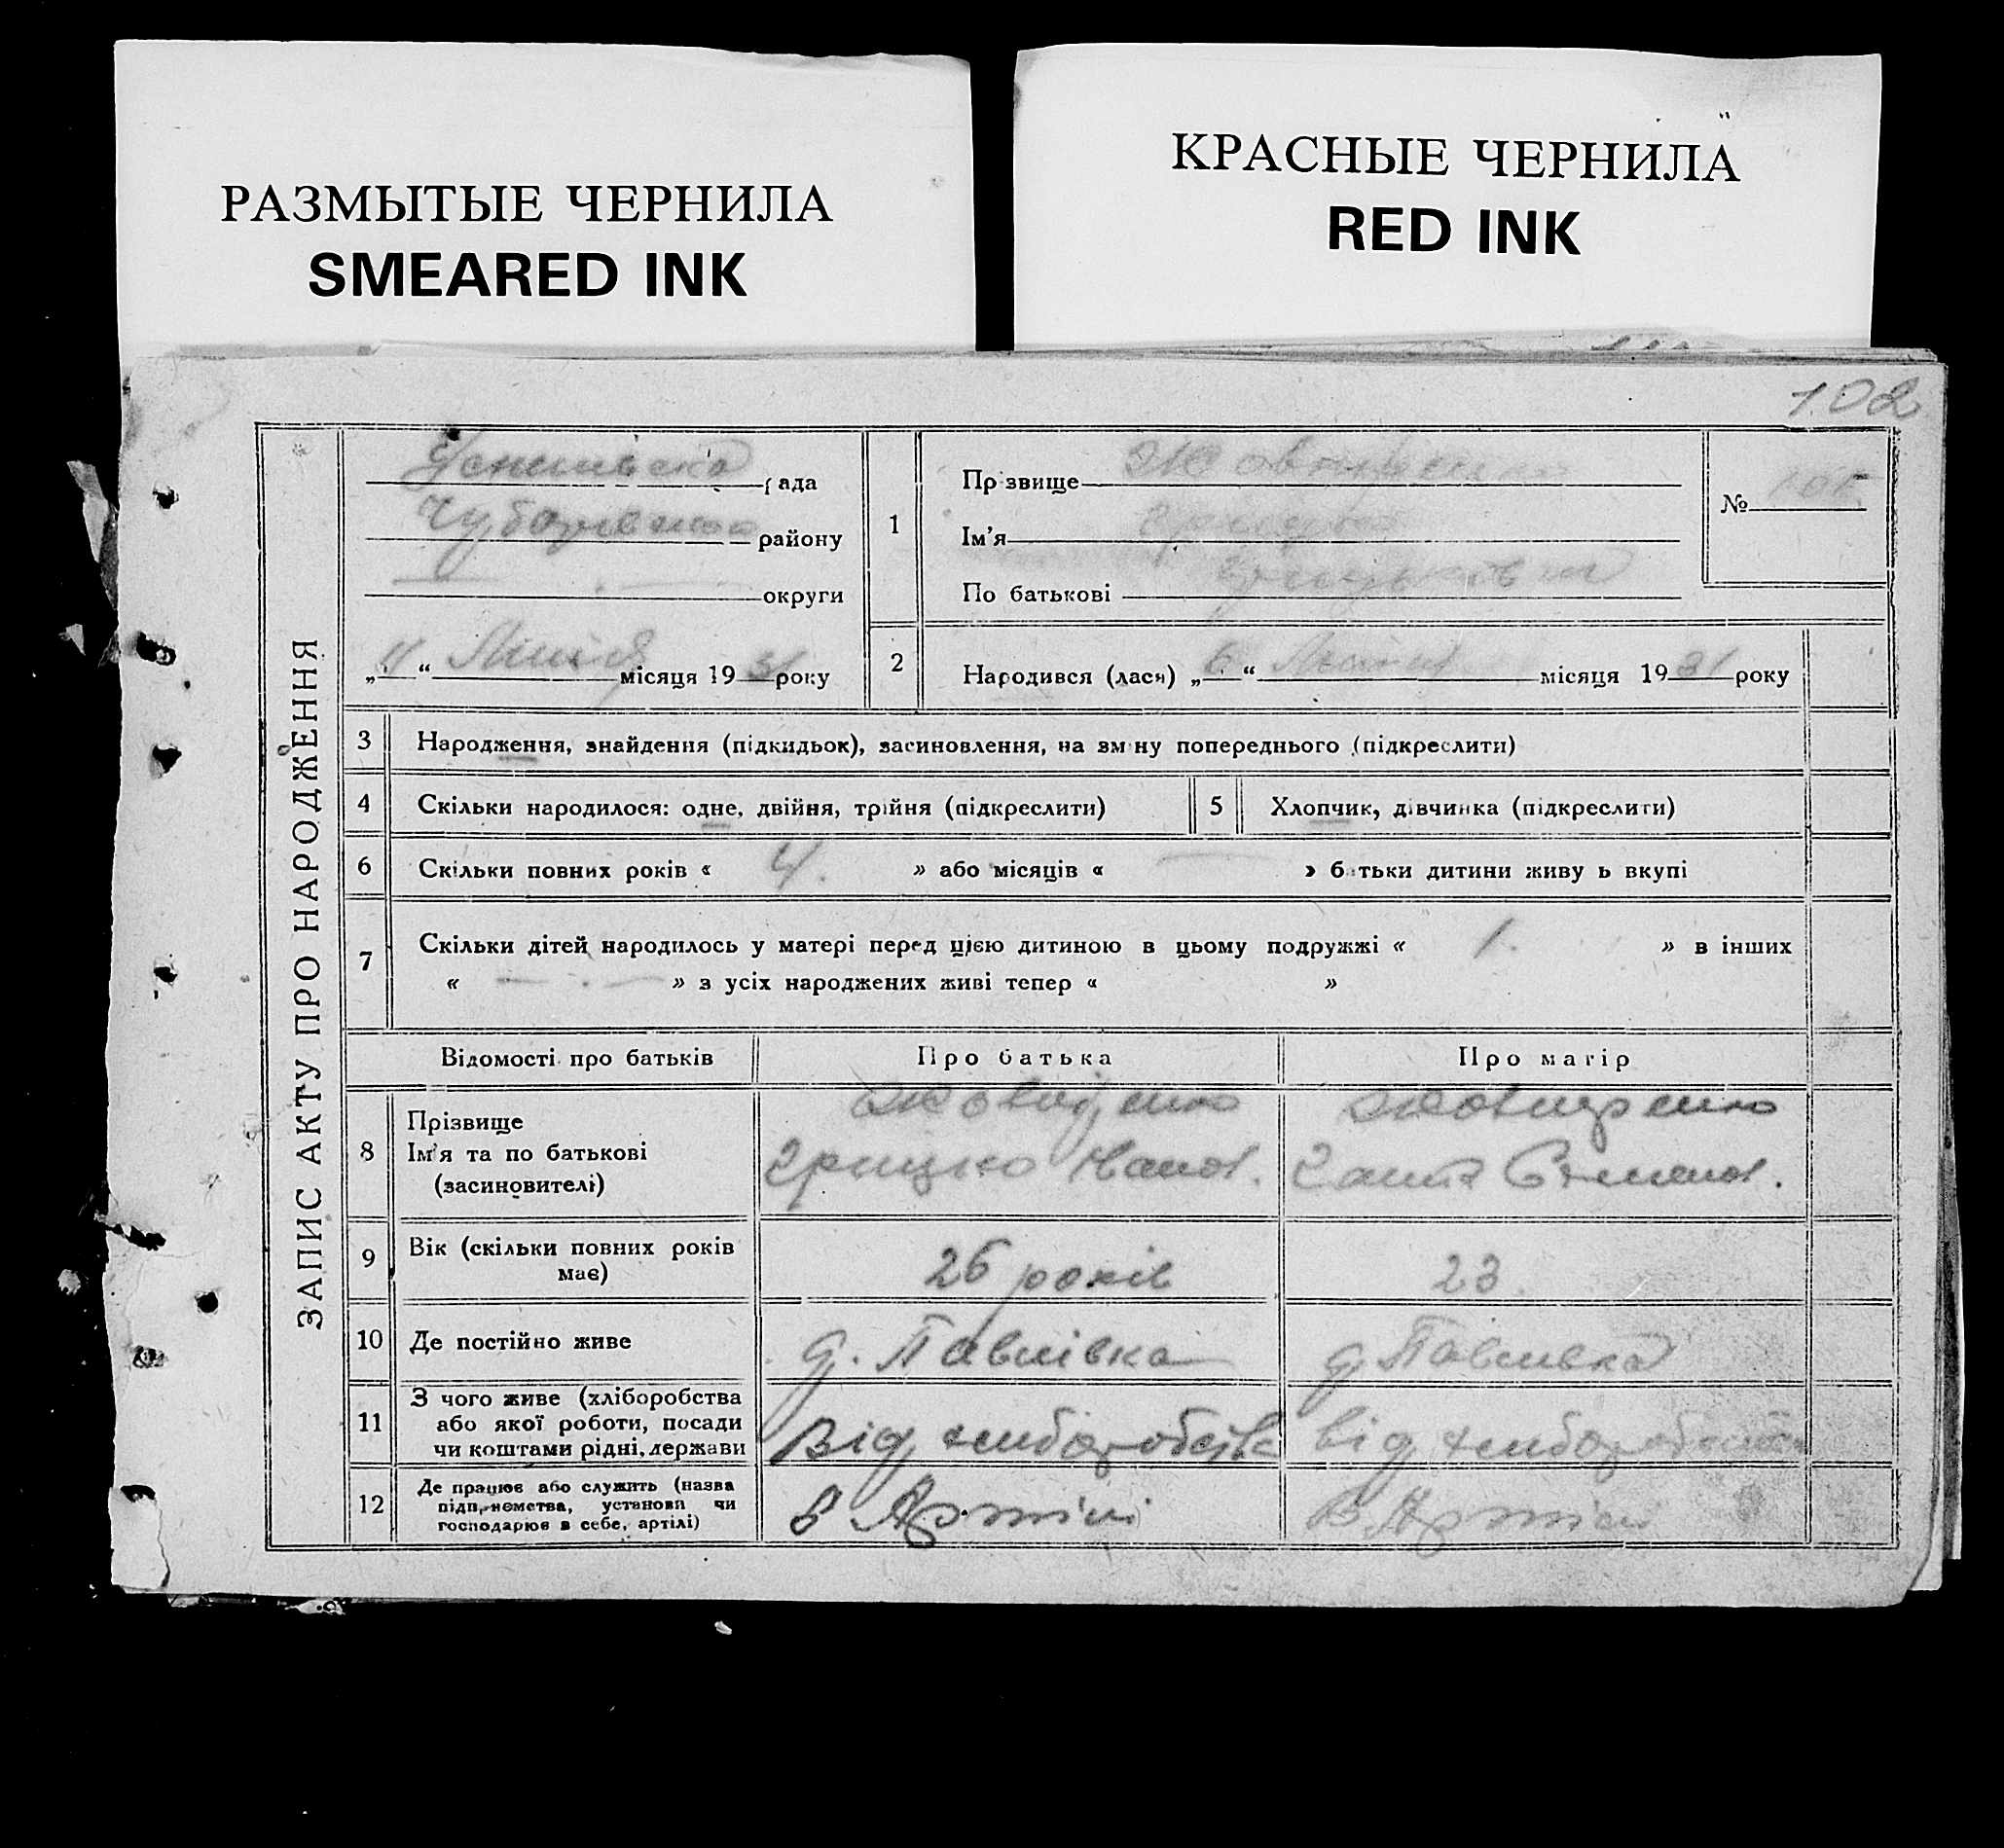 РАЗМЫТЫЕ ЧЕРНИЛА
SMEARED INK
КРАСНЫЕ ЧЕРНИЛА
RED INK
102
ЗАПИС АКТУ ПРО НАРОДЖЕННЯ
рада
району
округи
„ “ Липня місяця 1931 року
1
Прізвище
Ім'я
По батькові
№
2
Народився (лася) „6“ місяця 1931 року
3 Народження, знайдення (підкидьок), засиновлення, на зміну попереднього (підкреслити)
4 Скільки народилося: одне, двійня, трійня (підкреслити)
5 Хлопчик, дівчинка (підкреслити)
6 Скільки повних років « 4. » або місяців « — » батьки дитини живуть вкупі
7 Скільки дітей народилось у матері перед цією дитиною в цьому подружжі « 1. » в інших
« — » з усіх народжених живі тепер « »
Відомості про батьків Про батька Про матір
8 Прізвище
Ім'я та по батькові Грицько Іванов.
(засиновителі)
9 Вік (скільки повних років має) 26 років 23
10 Де постійно живе д. Павлівка д. Павлівка
11 З чого живе (хліборобства
або якої роботи, посади
чи коштами рідні, держави Від хліборобства від хліборобства
12 Де працює або служить (назва
підприємства, установи чи
господарює в себе, артілі) в Артілі в Артілі